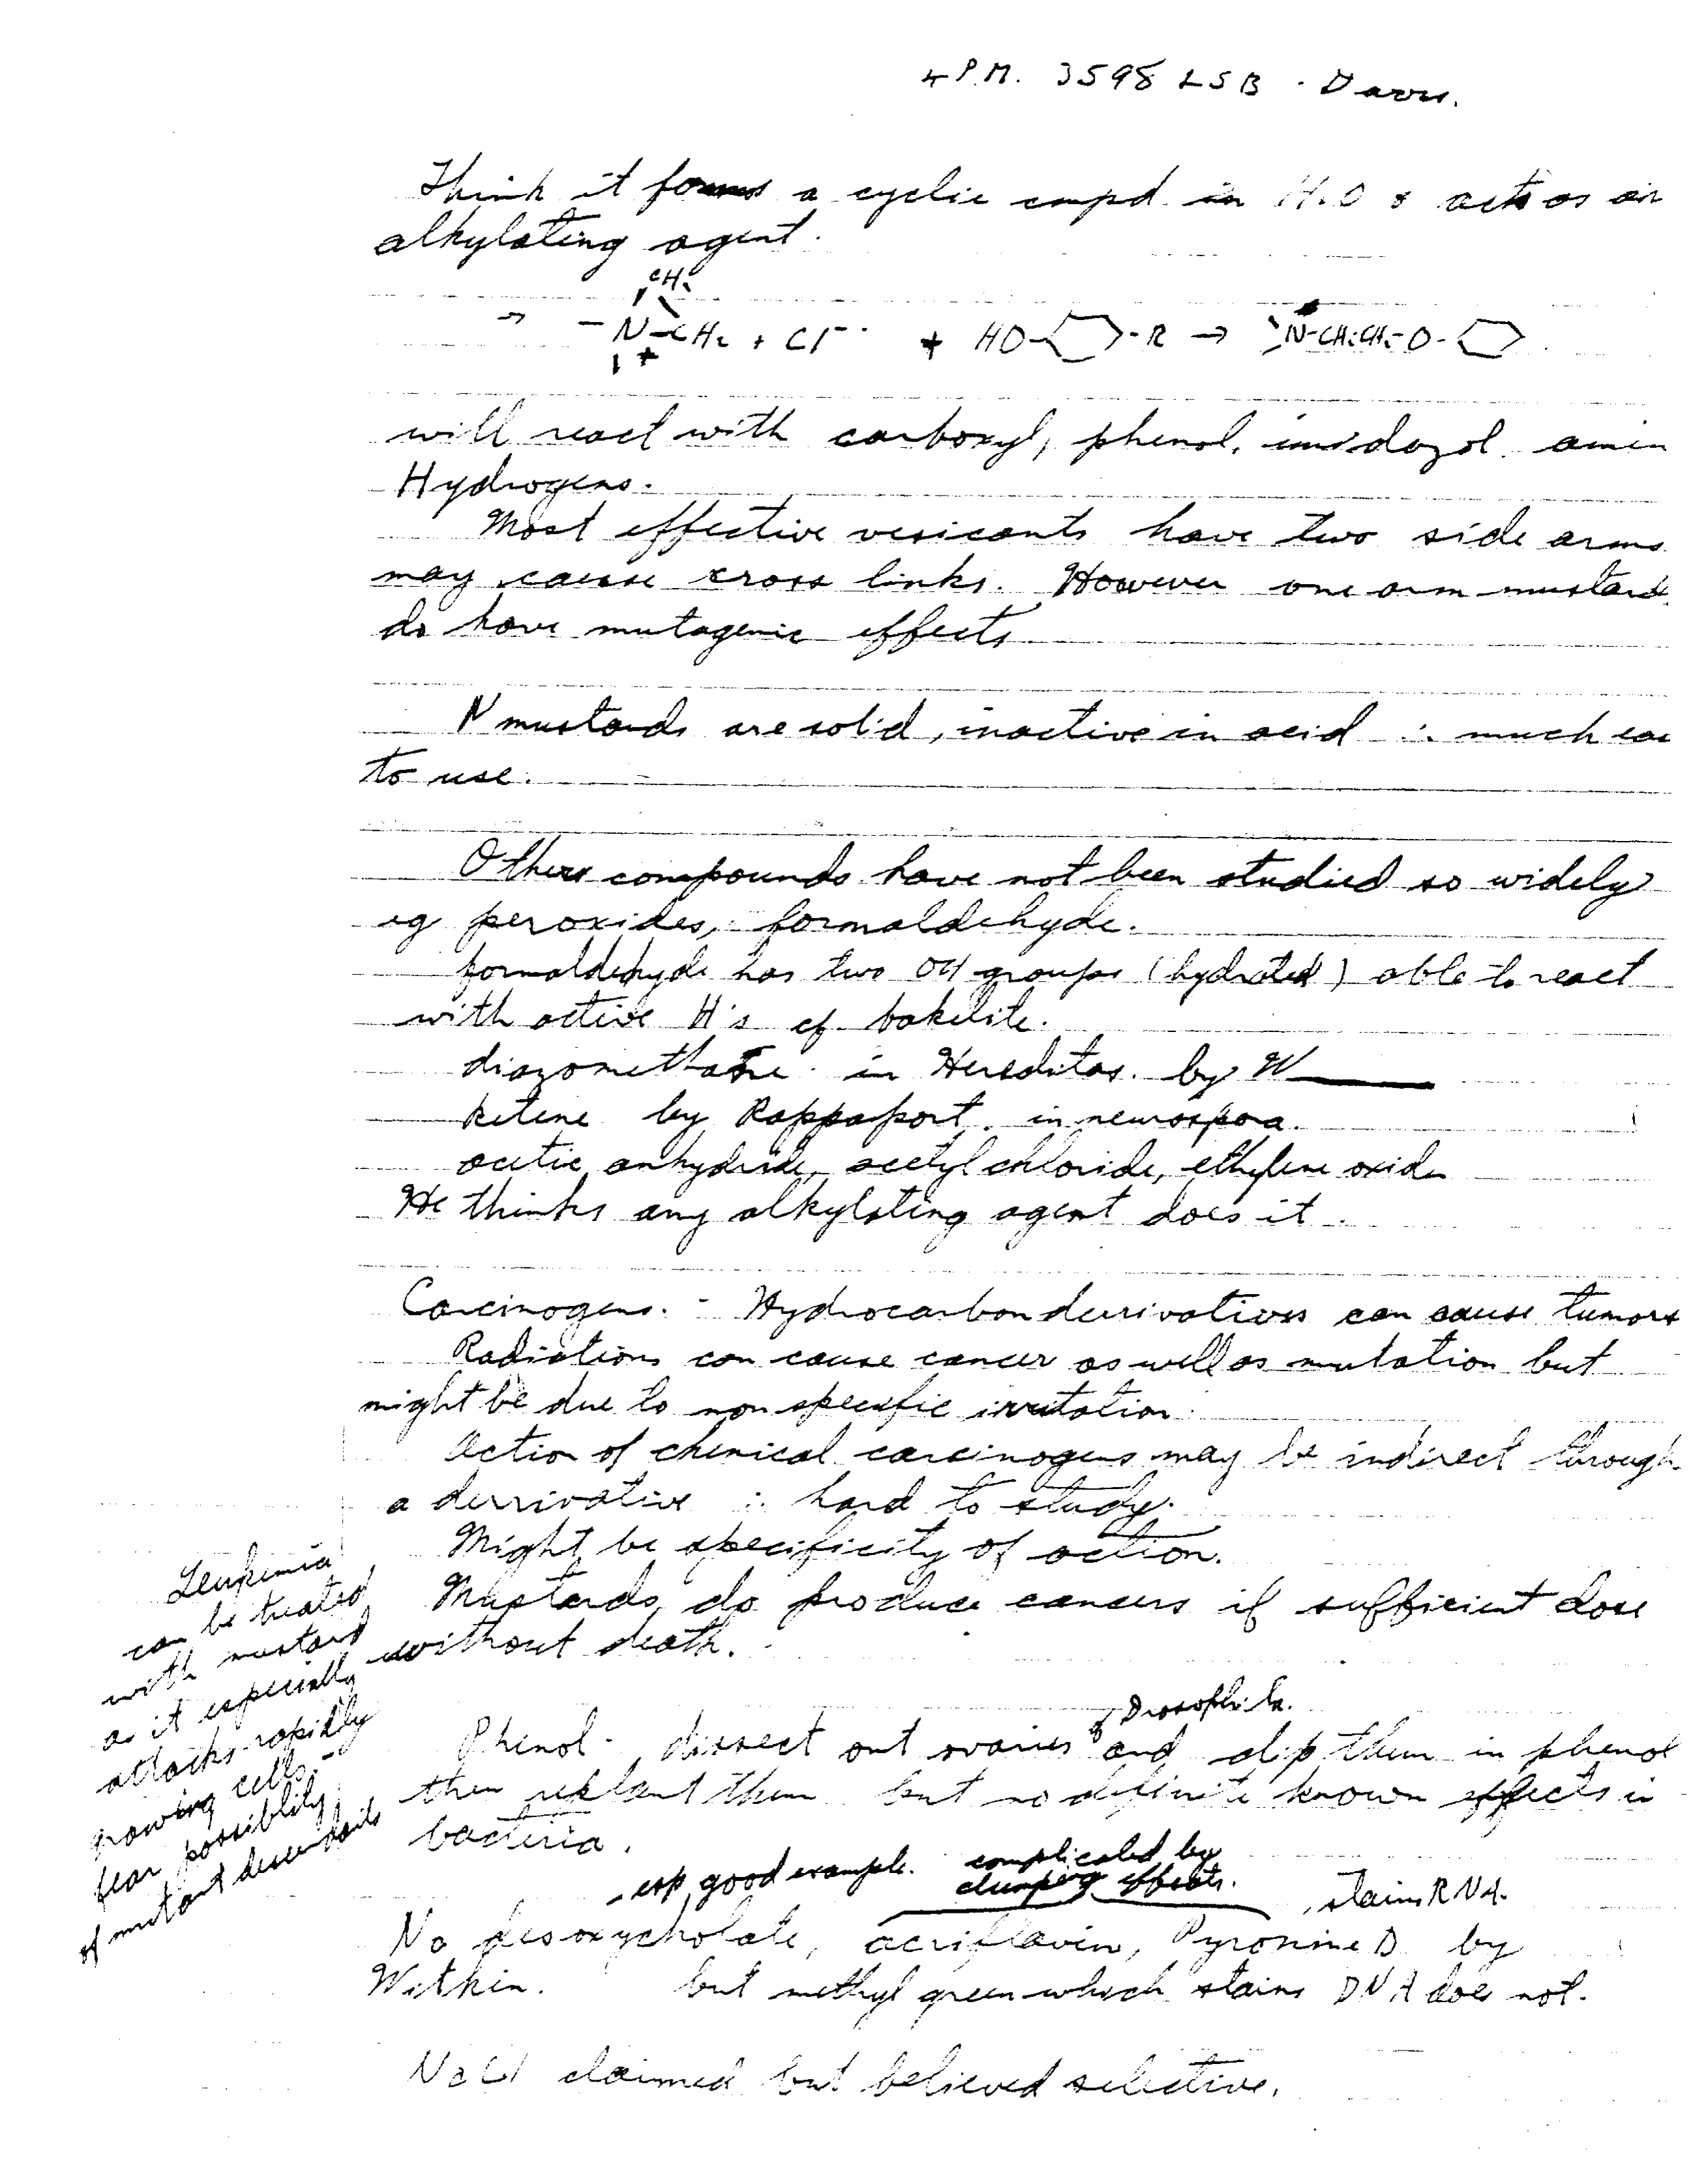 4 P.M. 3598 LSB - Davis.
Think it forms a cyclic cmpd in H2O & acts as an
alkylating agent.
CH2
→ -N-CH2 + Cl- + HO- -R → N-CH2CH2-O-
+
will react with carboxyl, phenol, imidazol, amin
Hydrogens.
Most effective vesicants have two side arms
may cause cross links. However one arm mustards
do have mutagenic effects
N mustards are solid, inactive in acid ∴ much eas
to use.
Others compounds have not been studied so widely
eg peroxides, formaldehyde.
formaldehyde has two OH groups (hydrated) able to react
with active H's cf bakelite.
diazomethane in Hereditas. by W
ketene by Rappaport. in neurospora.
acetic anhydride, acetyl chloride, ethylene oxide
He thinks any alkylating agent does it.
Carcinogens. - Hydrocarbon derrivatives can cause tumors
Radiations can cause cancer as well as mutation but
might be due to non specific irritation.
Action of chemical carcinogens may be indirect through
a derrivative ∴ hard to study.
Might be specificity of action.
Mustards do produce cancers if sufficient dose
without death.
Leukemia
can be treated
with mustard
as it especially
attacks rapidly
growing cells. -
fear possiblity
of mutant descendents
of Drosophila.
Phenol - dissect out ovaries and dip them in phenol
then replant them but no definite known effects in
bacteria.
- esp good example. complicated by
clumping effects. stains RNA.
Na desoxycholate, acriflavin, Pyronine B by
Witkin. but methyl green which stains DNA does not.
NaCl claimed but believed selective.